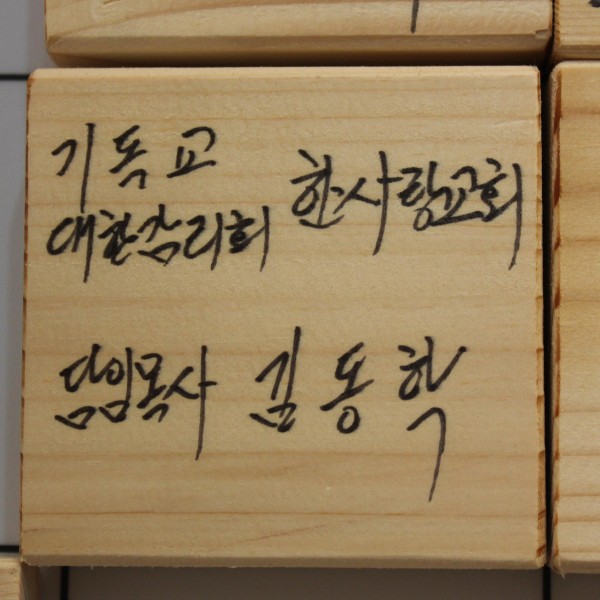 기독교
대한감리회 한사랑교회
담임목사 김동학